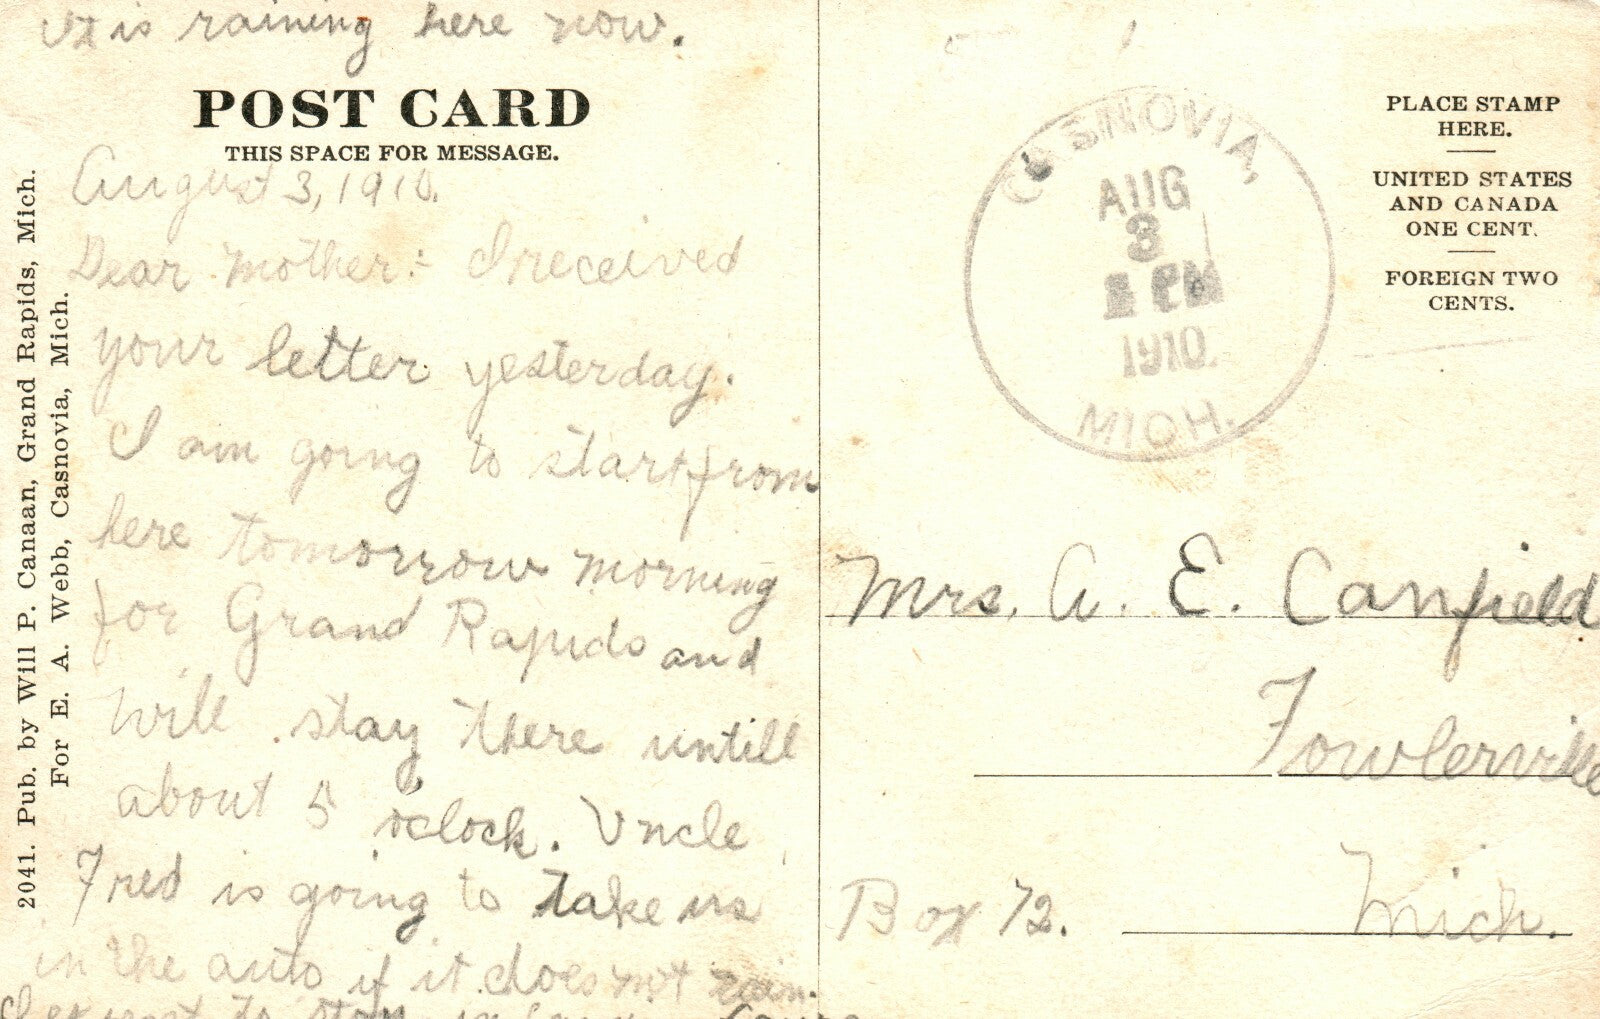 It is raining here now.
POST CARD
THIS SPACE FOR MESSAGE.
August 3, 1910.
Dear Mother:- I received
your letter yesterday.
I am going to start from
here tomorrow morning
for Grand Rapids and
will stay there untill
about 5 o'clock. Uncle
Fred is going to take us
in the auto if it does not rain.
I expect to stop in
2041. Pub. by Will P. Canaan, Grand Rapids, Mich.
For E. A. Webb, Casnovia, Mich.
CASNOVIA,
AUG
3
PM
1910.
MICH.
PLACE STAMP
HERE.
UNITED STATES
AND CANADA
ONE CENT.
FOREIGN TWO
CENTS.
Mrs. A. E. Canfield
Fowlerville
Box 72.
Mich.